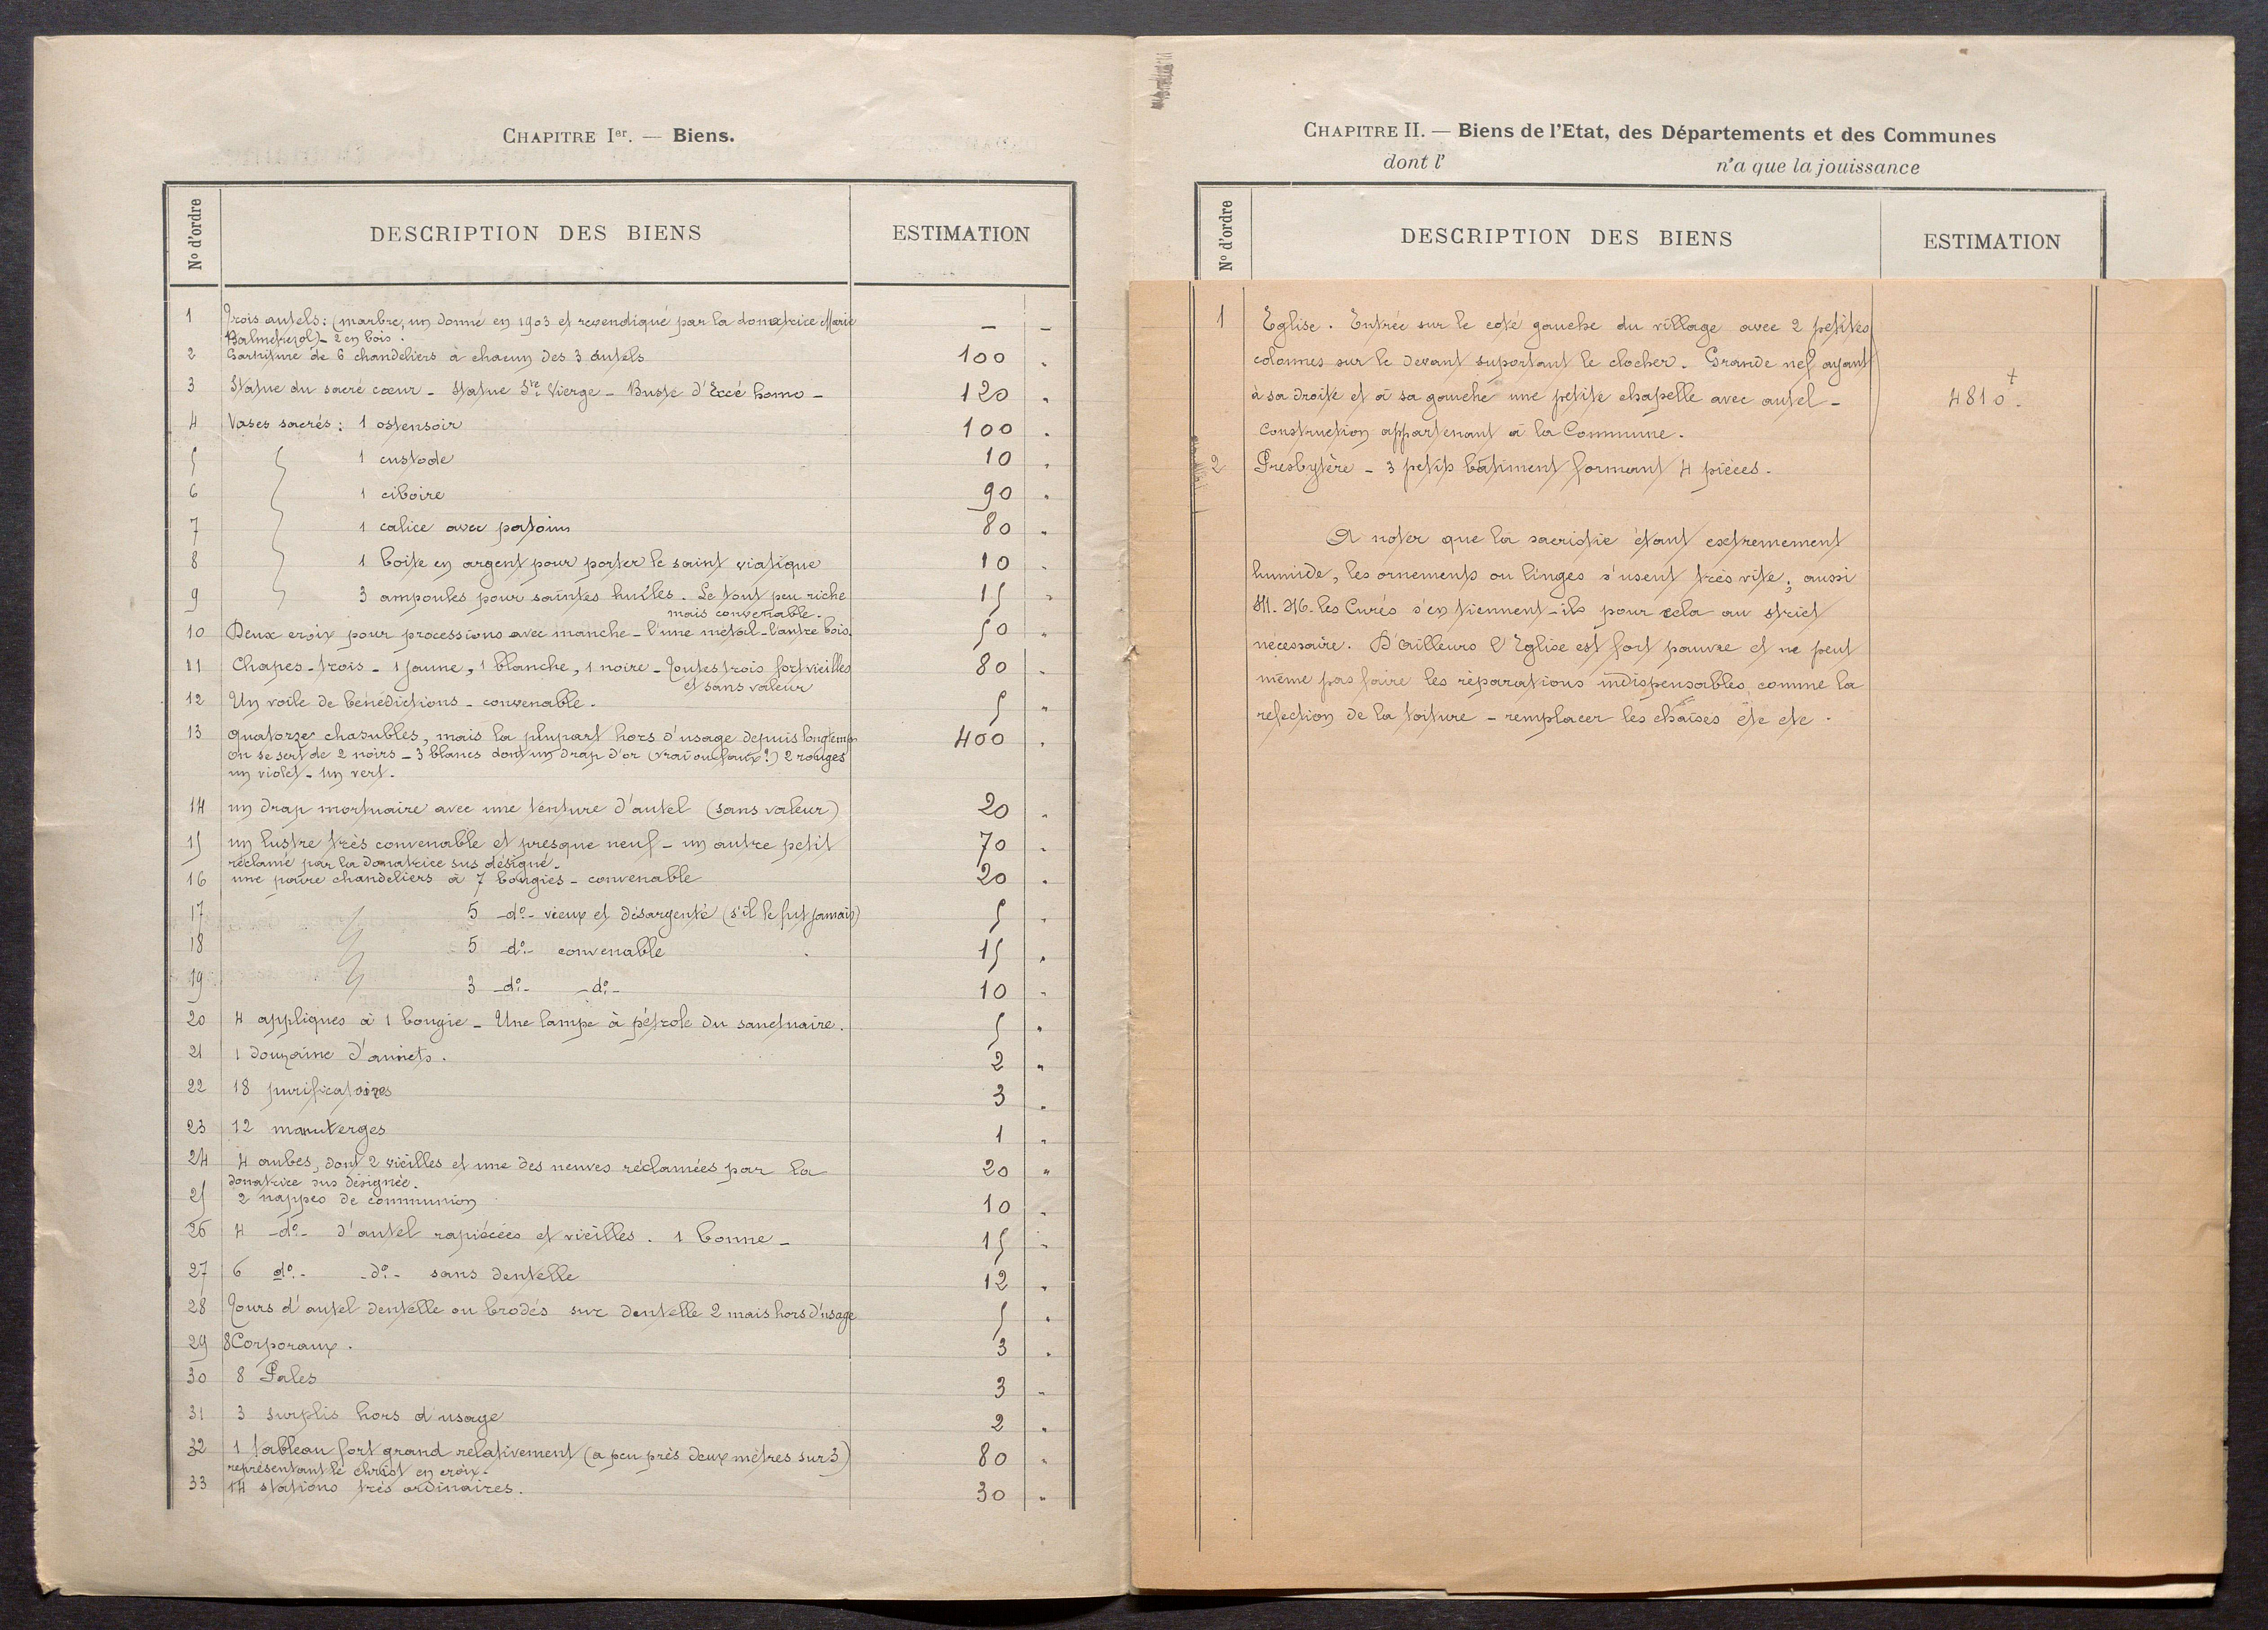 CHAPITRE Ier. — Biens.
No d'ordre | DESCRIPTION DES BIENS | ESTIMATION
1 | Trois autels: (marbre, un donné en 1903 et revendiqué par la donatrice Marie | — —
2 en bois.
2 | Garniture de 6 chandeliers à chacun des 3 autels | 100 "
3 | Statue du sacré cœur - Statue Ste Vierge - Buste d'Eccé homo - | 120 "
4 | Vases sacrés : 1 ostensoir | 100 "
5 | 1 custode | 10 "
6 | 1 ciboire | 90 "
7 | 1 calice avec | 80 "
8 | 1 boite en argent pour porter le saint viatique | 10 "
9 | 3 ampoules pour saintes huiles. Le tout peu riche | 15 "
mais convenable.
10 | Deux croix pour processions avec manche - l'une métal - l'autre bois. | 50 "
11 | Chapes - trois - 1 jaune, 1 blanche, 1 noire - Toutes trois fort vieilles | 80 "
et sans valeur
12 | Un voile de bénédictions - convenable. | 5 "
13 | quatorze chasubles, mais la plupart hors d'usage depuis longtemps | 400 "
on se sert de 2 noirs - 3 blancs dont un drap d'or (vrai ou faux?) 2 rouges
un violet - un vert.
14 | un drap mortuaire avec une tenture d'autel (sans valeur) | 20 "
15 | un lustre très convenable et presque neuf - un autre petit | 70 "
réclamé par la donatrice sus désigné -
16 | une paire chandeliers à 7 bougies - convenable | 20 "
17 | " 5 -do- vieux et désargenté (s'il le fut jamais) | 5 "
18 | " 5 -do- convenable | 15 "
19 | " 3 -do- -do- | 10 "
20 | 4 appliques à 1 bougie - Une lampe à pétrole du sanctuaire. | 5 "
21 | 1 douzaine d'amicts. | 2 "
22 | 18 purificatoires | 3 "
23 | 12 manuterges | 1 "
24 | 4 aubes, dont 2 vieilles et une des neuves réclamées par la | 20 "
donatrice sus désignée.
25 | 2 nappes de communion | 10 "
26 | 4 -do- d'autel rapiécées et vieilles. 1 bonne - | 15 "
27 | 6 do- -do- sans dentelle | 12 "
28 | Tours d'autel dentelle ou brodés sur dentelle 2 mais hors d'usage | 5 "
29 | 8 Corporaux. | 3 "
30 | 8 Pales | 3 "
31 | 3 surplis hors d'usage | 2 "
32 | 1 tableau fort grand relativement (a peu près deux mètres sur 3) | 80 "
représentant le christ en croix.
33 | 14 stations très ordinaires. | 30 "
CHAPITRE II. — Biens de l'Etat, des Départements et des Communes
dont l' n'a que la jouissance
No d'ordre | DESCRIPTION DES BIENS | ESTIMATION
1 | Eglise. Entrée sur le coté gauche du village avec 2 petites
colonnes sur le devant suportant le clocher. Grande nef ayant
à sa droite et à sa gauche une petite chapelle avec autel - | 4810
Construction appartenant à la Commune.
2 | Presbytère - 3 petits bâtiment formant 4 pièces.
A noter que la sacristie étant extremement
humide, les ornements ou linges s'usent très vite; aussi
M.M. les Curés s'en tiennent-ils pour cela au strict
nécessaire. D'ailleurs l'Eglise est fort pauvre et ne peut
même pas faire les réparations indispensables comme la
refection de la toiture - remplacer les chaises etc etc.